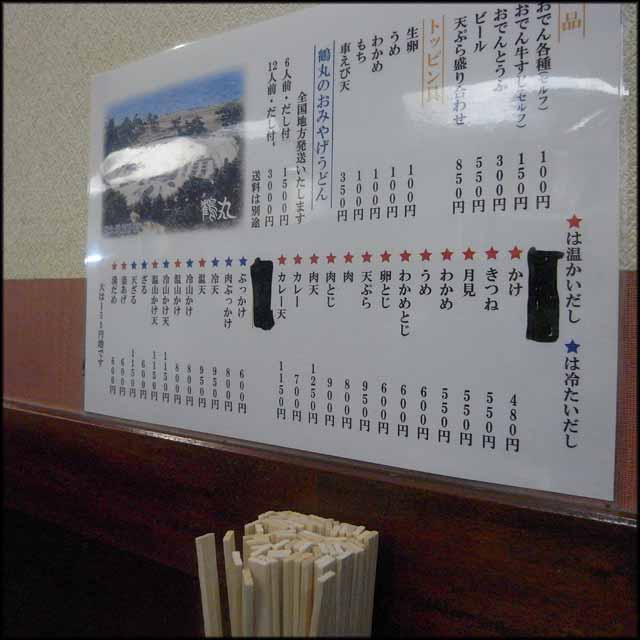 品
おでん各種(セルフ) 100円
おでん牛すじ(セルフ) 150円
おでんとうふ 300円
ビール 550円
天ぷら盛り合わせ 850円
トッピング
生卵 100円
うめ 100円
わかめ 100円
もち 100円
車えび天 350円
鶴丸のおみやげうどん
全国地方発送いたします
6人前・だし付 1500円
12人前・だし付 3000円
送料は別途
鶴丸
★は温かいだし ★は冷たいだし
★かけ 480円
★きつね 550円
★月見 550円
★わかめ 550円
★うめ 600円
★わかめとじ 600円
★卵とじ 600円
★天ぷら 950円
★肉 800円
★肉とじ 900円
★肉天 1250円
★カレー 700円
★カレー天 1150円
★ぶっかけ 600円
★肉ぶっかけ 800円
★冷天 950円
★温天 950円
★冷山かけ 800円
★温山かけ 800円
★冷山かけ天 1150円
★温山かけ天 1150円
★ざる 600円
★天ざる 1150円
★釜あげ 600円
★湯だめ 600円